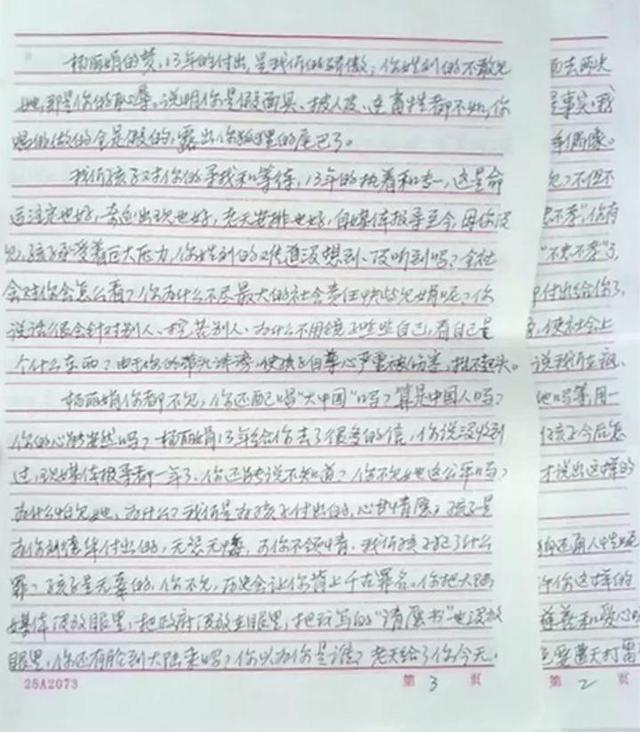 杨丽娟的梦，13年的付出，是我们的骄傲，你姓刘的不敢见
她，那是你的耻辱，说明你是假面具、披人皮、连畜牲都不如，你
唱的做的全是假的，露出你狐狸的尾巴了。
我们孩子对你的寻找和等待，13年的执着和专一，这是命
运注定也好，奇迹出现也好，老天安排也好，自媒体报导至今，因你没
见，孩子承受着巨大压力，你姓刘的难道没想到、没听到吗？全社
会对你会怎么看？你为什么不尽最大的社会责任快些见娟呢？你
说话很会针对别人、挖苦别人、为什么不用镜子照照自己，看自己是
个什么东西？由于你的，使孩子自尊心严重被伤害，抬不起头。
杨丽娟你都不见，你还配唱“大中国”吗？算是中国人吗？
你的心能安然吗？杨丽娟13年给你去了很多的信，你说没收到
过，现媒体报导都一年了，你还能说不知道？你不见她这公平吗？
为什么怕见她，为什么？我们是为孩子付出的，心甘情愿；孩子是
为你刘德华付出的，无怨无悔，可你不领情。我们孩子犯了什么
罪？孩子是无辜的，你不见，历史会让你背上千古罪名。你把大陆
媒体没放眼里，把政府没放在眼里，把我写的“请愿书”也没放
眼里，你还有脸到大陆来吗？你以为你是谁？老天给了你今天，
25A2073
第 3 页
事实，我
偶像。
见？不但不
不孝”，你有
“不忠不孝”了，
付出给了你，
使社会上
说我们在疯、
她吗等，用一
孩子今后怎
才说出这样的
你这样的
慈善和爱心
要遭天打雷
第 2 页